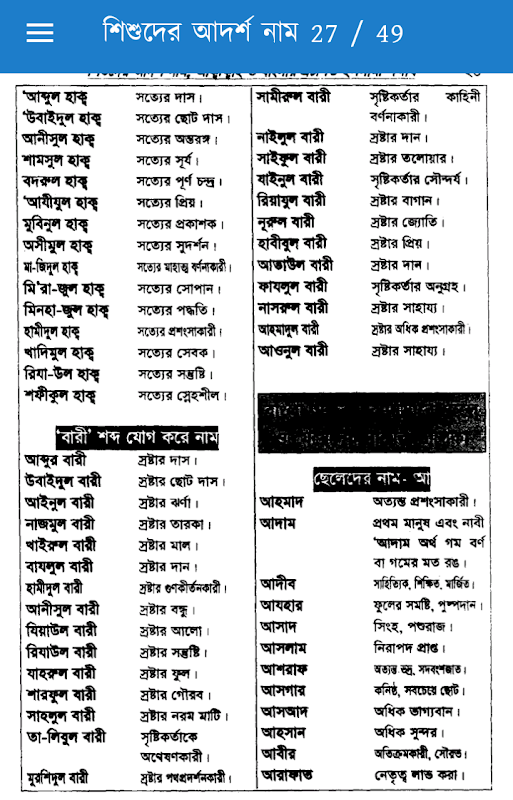 শিশুদের আদর্শ নাম 27 / 49
'আব্দুল হাক্ব সত্যের দাস।
'উবাইদুল হাক্ব সত্যের ছোট দাস।
আনীসুল হাক্ব সত্যের অন্তরঙ্গ।
শামসুল হাক্ব সত্যের সূর্য।
বদরুল হাক্ব সত্যের পূর্ণ চন্দ্র।
'আযীযুল হাক্ব সত্যের প্রিয়।
মুবিনুল হাক্ব সত্যের প্রকাশক।
অসীমুল হাক্ব সত্যের সুদর্শন।
মা-জিদুল হাক্ব সত্যের মাহাত্ম বর্ণনাকারী।
মি'রা-জুল হাক্ব সত্যের সোপান।
মিনহা-জুল হাক্ব সত্যের পদ্ধতি।
হামীদুল হাক্ব সত্যের প্রশংসাকারী।
খাদিমুল হাক্ব সত্যের সেবক।
রিযা-উল হাক্ব সত্যের সন্তুষ্টি।
শফীকুল হাক্ব সত্যের স্নেহশীল।
'বারী' শব্দ যোগ করে নাম
আব্দুর বারী স্রষ্টার দাস।
উবাইদুল বারী স্রষ্টার ছোট দাস।
আইনুল বারী স্রষ্টার ঝর্ণা।
নাজমুল বারী স্রষ্টার তারকা।
খাইরুল বারী স্রষ্টার মাল।
বাযলুল বারী স্রষ্টার দান।
হামীদুল বারী স্রষ্টার গুণকীর্তনকারী।
আনীসুল বারী স্রষ্টার বন্ধু।
যিয়াউল বারী স্রষ্টার আলো।
রিযাউল বারী স্রষ্টার সন্তুষ্টি।
যাহরুল বারী স্রষ্টার ফুল।
শারফুল বারী স্রষ্টার গৌরব।
সাহলুল বারী স্রষ্টার নরম মাটি।
তা-লিবুল বারী সৃষ্টিকর্তাকে
অন্বেষণকারী।
মুরশিদুল বারী স্রষ্টার পথপ্রদর্শনকারী।
সামীরুল বারী সৃষ্টিকর্তার কাহিনী
বর্ণনাকারী।
নাইলুল বারী স্রষ্টার দান।
সাইফুল বারী স্রষ্টার তলোয়ার।
যাইনুল বারী সৃষ্টিকর্তার সৌন্দর্য।
রিয়াযুল বারী স্রষ্টার বাগান।
নূরুল বারী স্রষ্টার জ্যোতি।
হাবীবুল বারী স্রষ্টার প্রিয়।
আতাউল বারী স্রষ্টার দান।
ফাযলুল বারী সৃষ্টিকর্তার অনুগ্রহ।
নাসরুল বারী স্রষ্টার সাহায্য।
আহমাদুল বারী স্রষ্টার অধিক প্রশংসাকারী।
আওনুল বারী স্রষ্টার সাহায্য।
ছেলেদের নাম- আ
আহমাদ অত্যন্ত প্রশংসাকারী।
আদাম প্রথম মানুষ এবং নাবী
'আদাম অর্থ গম বর্ণ
বা গমের মত রঙ।
আদীব সাহিত্যিক, শিক্ষিত, মার্জিত।
আযহার ফুলের সমষ্টি, পুষ্পদান।
আসাদ সিংহ, পশুরাজ।
আসলাম নিরাপদ প্রাপ্ত।
আশরাফ অত্যন্ত ভদ্র, সদবংশজাত।
আসগার কনিষ্ঠ, সবচেয়ে ছোট।
আসআদ অধিক ভাগ্যবান।
আহসান অধিক সুন্দর।
আবীর অতিক্রমকারী, সৌরভ।
আরাফাত নেতৃত্ব লাভ করা।